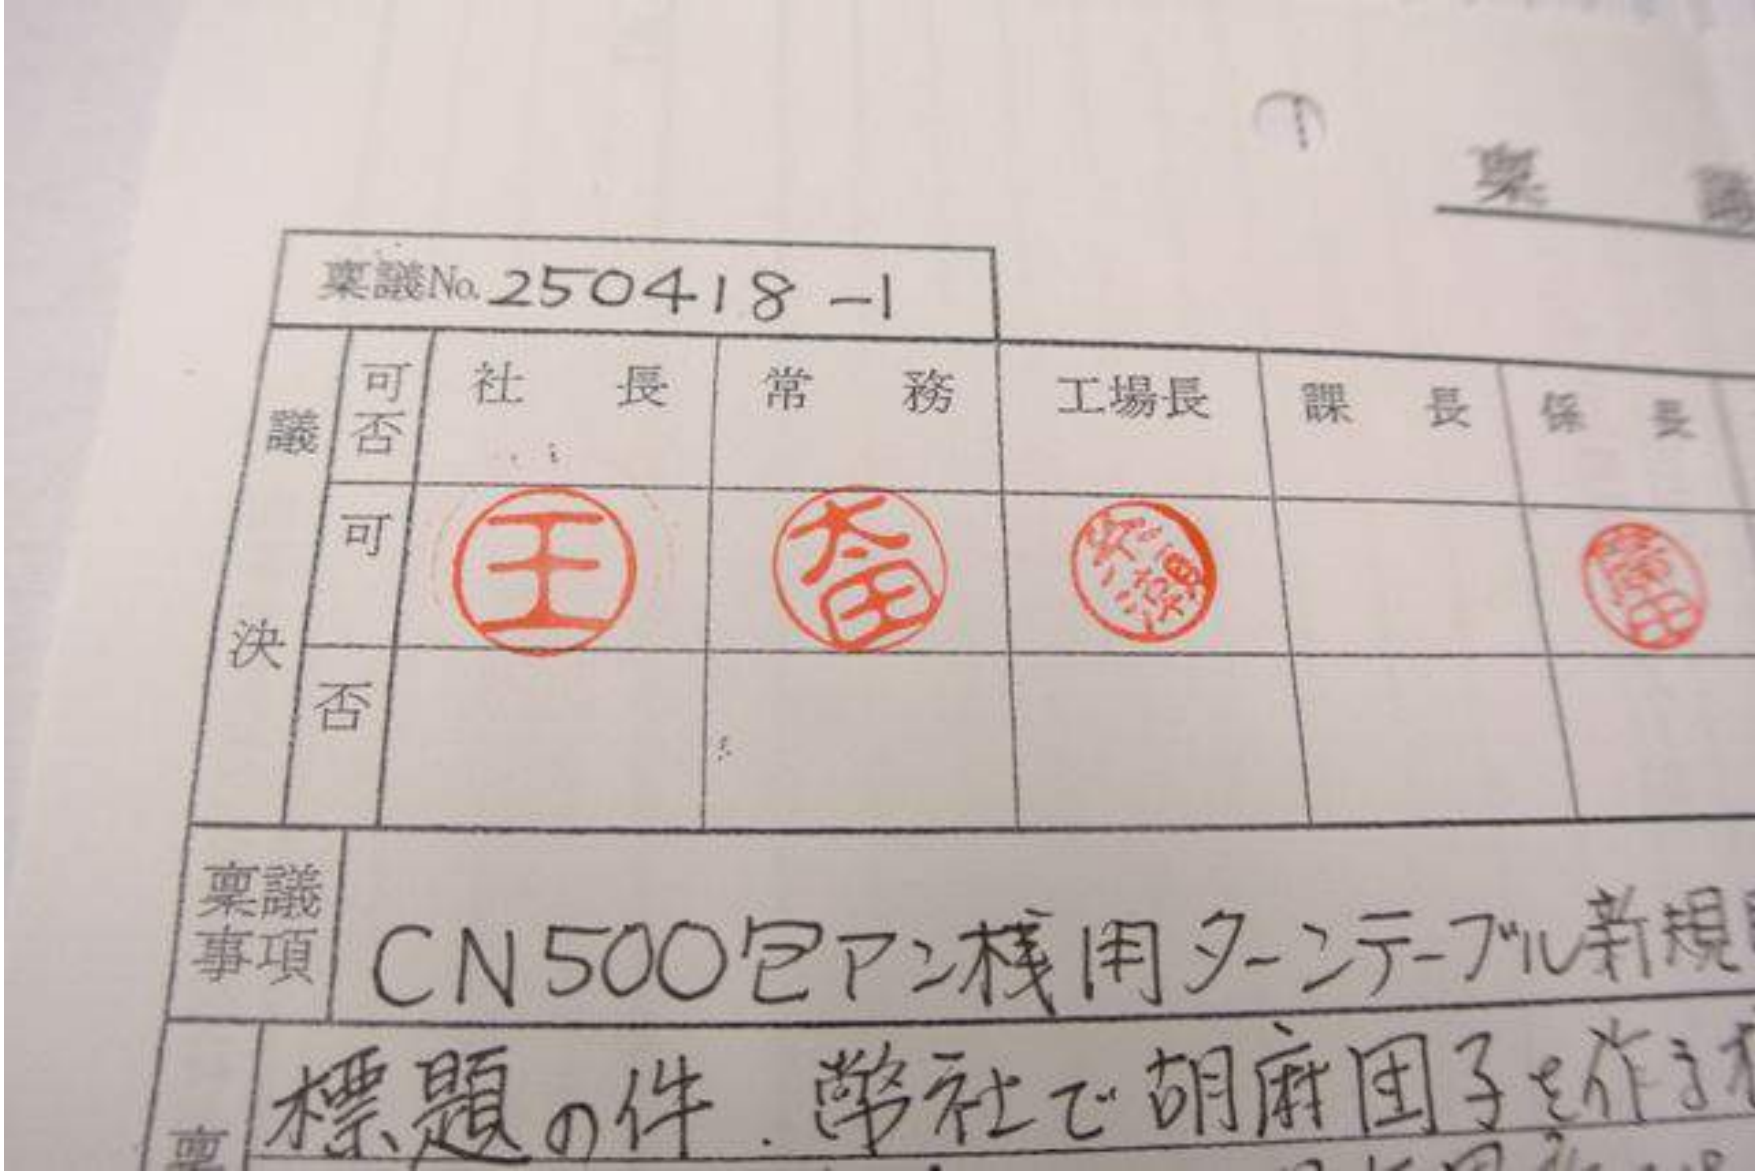 稟議
稟議No. 250418-1
議決
可否
社長
常務
工場長
課長
係長
可
王
太田
否
稟議事項
CN500包アン機用ターンテーブル新規
標題の件.弊社で胡麻団子を作
稟